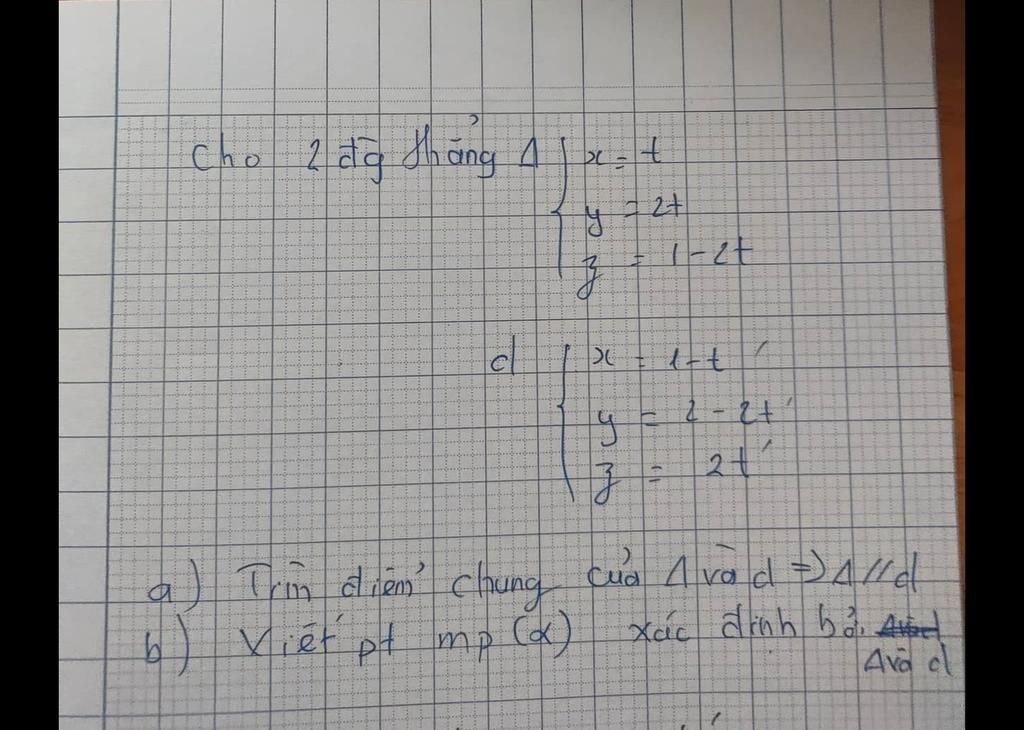 Cho 2 đg thẳng Δ { x = t
y = 2t
z = 1 - 2t
d { x = 1 - t'
y = 2 - 2t'
z = 2t'
a) Tìm điểm chung của Δ và d => Δ // d
b) Viết pt mp (α) xác định bởi
Δ và d